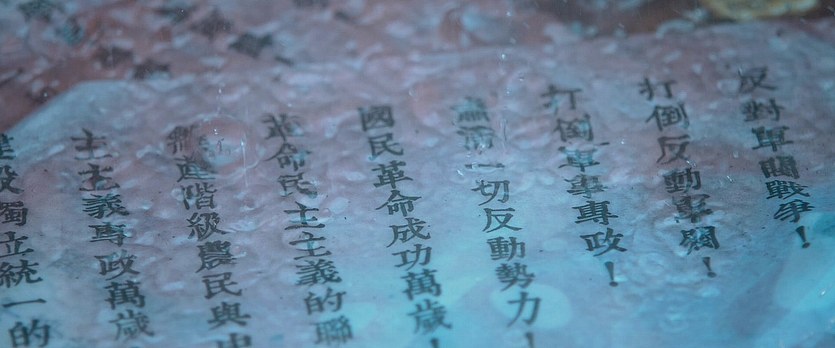 反對軍閥戰爭！
打倒反動軍閥！
打倒軍事專政！
肅清一切反動勢力！
國民革命成功萬歲！
革命民主主義的聯
無產階級農民與
士主義專政萬歲
建設獨立統一的